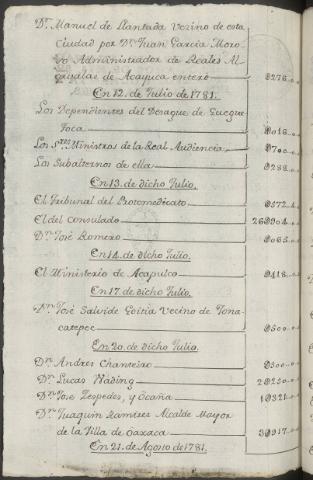 Dn. Manuel de Llantada vecino de esta
Ciudad por Dn. Juan Garcia Moro-
vo Administrador de Reales Al-
cavalas de Acayuca enteró 0276..0..
En 12. de Julio de 1781.
Los Dependientes del Desague de Guegue-
toca 0016..
Los Sres. Ministros de la Real Audiencia 0700..
Los Subalternos de ella 0288..
En 13. de dicho Julio.
El Tribunal del Protomedicato 0472..
El del Consulado
Dn. José Romero 0065..
En 14. de dicho Julio.
El Ministerio de Acapulco 0418..
En 17. de dicho Julio.
Dn. José Salvide Goitia Vecino de Tona-
catepec 0500..
En 20. de dicho Julio.
Dn. Andres Chanteiro 0300..
Dn. Lucas Wading
Dn. José Zespedes, y Ocaña
Dn. Juaquin Ramires Alcalde Mayor
de la Villa de Oaxaca
En 21. de Agosto de 1781.